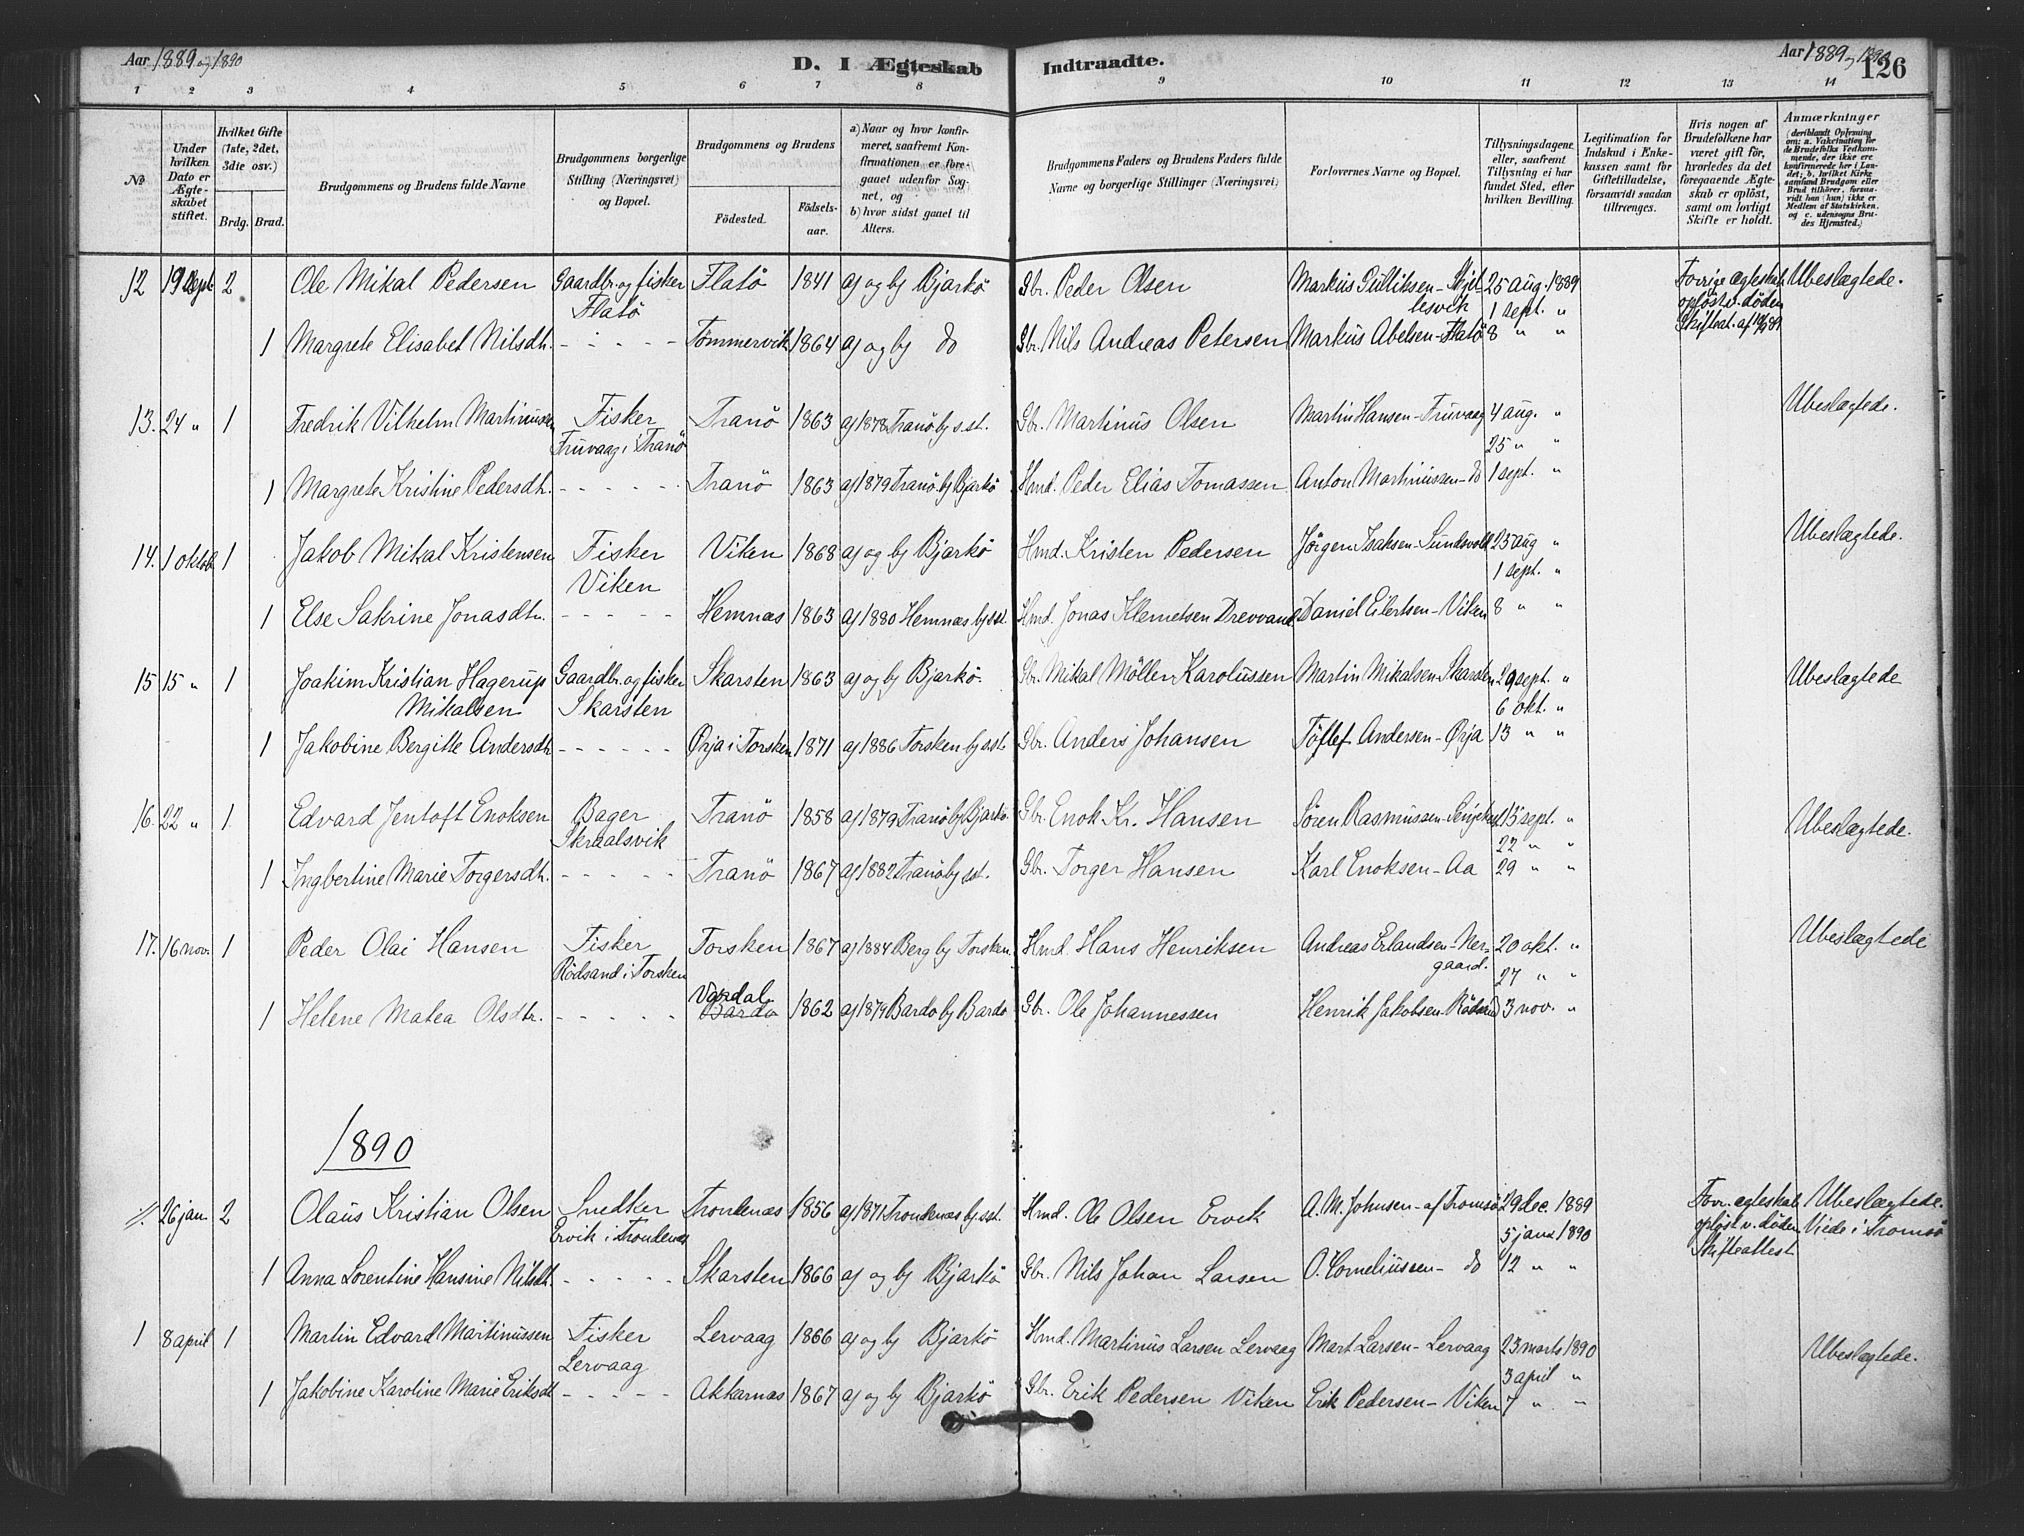 Aar 1889 og 1890 D. I Ægteskab Indtraadte. Aar 1889 og 1890 126
1 2 3 4 5 6 7 8 9 10 11 12 13 14
No
Under hvilken Dato er Ægteskabet stiftet.
Hvilket Gifte (1ste, 2det, 3die osv.)
Brdg. Brud.
Brudgommens og Brudens fulde Navne
Brudgommens borgerlige Stilling (Næringsvei) og Bopæl.
Brudgommens og Brudens
Födested. Födselsaar.
a) Naar og hvor konfirmeret, saafremt Konfirmationen er foregaaet udenfor Sognet, og
b) hvor sidst gaaet til Alters.
Brudgommens Faders og Brudens Faders fulde Navne og borgerlige Stillinger (Næringsvei)
Forlovernes Navne og Bopæl.
Tillysningsdagene eller, saafremt Tillysning ei har fundet Sted, efter hvilken Bevilling.
Legitimation for Indskud i Enkekassen samt for Giftetilladelse, forsaavidt saadan tiltrænges.
Hvis nogen af Brudefolkene har været gift før, hvorledes da det foregaaende Ægteskab er oplöst, samt om lovligt Skifte er holdt.
Anmærkninger
(deriblandt Oplysning om: a. Vakcination for de Brudefolks Vedkommende, der ikke ere konfirmerede her i Landet; b. hvilket Kirkesamfund Brudgom eller Brud tilhörer, forsaavidt han (hun) ikke er Medlem af Statskirken, og c. udensogns Brudes Hjemsted.)
12 19 Sept. 2 Ole Mikal Pedersen Gaardbr. og fisker Flatö 1841 a) og b) Bjarkö Gbr. Peder Olsen Markus Gulliksen- 25 aug. 1889 Forrige ægteskab Ubeslægtede.
Flatö lesvik 1 sept. " opløst v. døden
1 Margrete Elisabet Nilsdh. - - - - - Tømmervik 1864 a) og b) do Gbr. Nils Andreas Petersen Markus Abelsen-Flatö 8 " " Skifteat. af
13. 24 " 1 Fredrik Vilhelm Martinussen Fisker Tranö 1863 a) 1878 Tranö b) s.st. Gbr. Martinus Olsen Martin Hansen-Truvaag 4 aug. " Ubeslægtede.
Truvaag i Tranö 25 " "
1 Margrete Kristine Pedersdh. - - - - - Tranö 1863 a) 1879 Tranö b) Bjarkö Hmd. Peder Elias Tomassen Anton Martinussen-do 1 sept. "
14. 1 oktob. 1 Jakob Mikal Kristensen Fisker Viken 1868 a) og b) Bjarkö Hmd. Kristen Pedersen Jørgen Isaksen-Sundsvold 25 aug " Ubeslægtede.
Viken 1 sept. "
1 Else Sakrine Jonasdtr. - - - - - Hemnæs 1863 a) 1880 Hemnæs b) s.st. Hmd. Jonas Klemetsen Drevvand Daniel Eilertsen-Viken 8 " "
15 15 " 1 Joakim Kristian Hagerup Gaardbr. og fisker Skarsten 1863 a) og b) Bjarkö. Gbr. Mikal Möller Karolussen Martin Mikalsen-Skarsten 29 sept. " Ubeslægtede
Mikalsen Skarsten 6 okt. "
1 Jakobine Bergitte Andersdtr - - - - - Ørja i Torsken 1871 a) 1886 Torsken b) s.st. Gbr. Anders Johansen Töllef Andersen-Ørja 13 " "
16. 22 " 1. Edvard Jentoft Enoksen Bager Tranö 1858 a) 1879 Tranö b) Bjarkö Gbr. Enok Kr. Hansen Sören Rasmussen- 15 sept. " Ubeslægtede.
Skraalsvik 22 " "
1 Ingbertine Marie Torgersdh. - - - - - Tranö 1867 a) 1882 Tranö b) s.st. Gbr. Torger Hansen Karl Enoksen-Aa 29 " "
17. 16 nov. 1 Peder Olai Hansen Fisker Torsken 1867 a) 1884 Berg b) Torsken. Hmd. Hans Henriksen Andreas Erlandsen-Ner- 20 okt. " Ubeslægtede
Rödsand i Torsken gaard. 27 " "
Vardal
1 Helene Matea Olsdtr. - - - - - Bardo 1862 a) 1879 Bardo b) Bardo Gbr. Ole Johannessen Henrik Jakobsen-Rödsand 3 nov. "
1890
26 jan. 2 Olaus Kristian Olsen Snedker Trondenæs 1856 a) 1871 Trondenæs b) s.st. Hmd. Ole Olsen Ervik A. M. Johnsen-af Tromsö 29 dec. 1889 Forr. ægteskab Ubeslægtede.
Ervik i Trondenæs 5 janr 1890 opløst v. døden Viede i Tromsö
1 Anna Lorentine Hansine Nilsdt. - - - - - Skarsten 1866 a) og b) Bjarkö Gbr. Nils Johan Larsen O. Corneliussen- do 12 " " Skifteattest
1 8 april 1 Martin Edvard Martinussen Fisker Lervaag 1866 a) og b) Bjarkö Hmd. Martinus Larsen Lervaag Mart Larsen-Lervaag 23 marts 1890 Ubeslægtede.
Lervaag 3 april "
1 Jakobine Karoline Marie Eriksdt - - - - - Akkarnæs 1867 a) og b) Bjarkö Gbr. Erik Pedersen Viken Erik Pedersen-Viken 7 " "